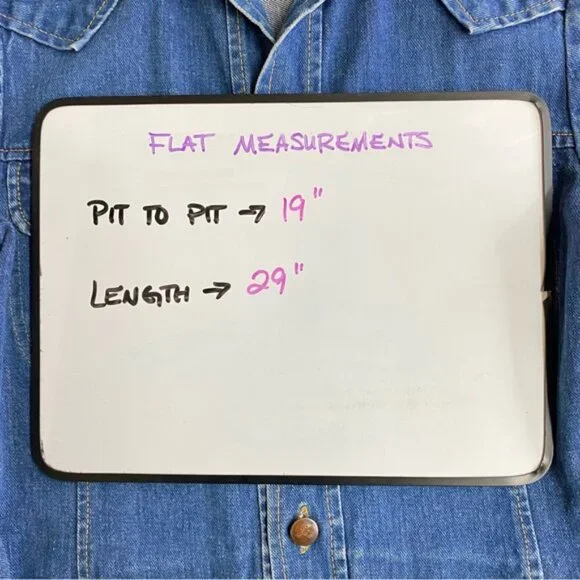 FLAT MEASUREMENTS
PIT TO PIT → 19"
LENGTH → 29"